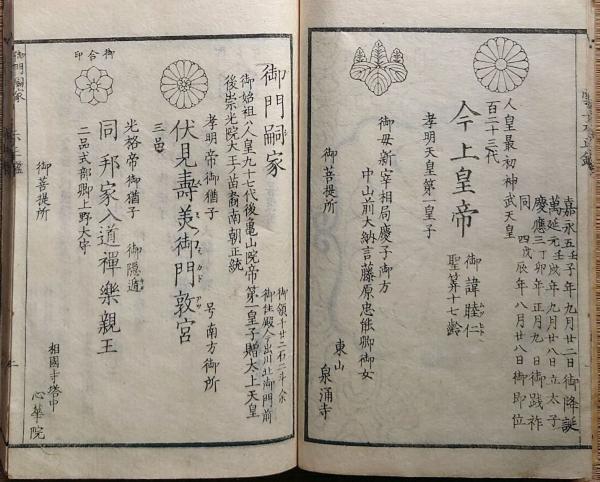 人皇最初神武天皇
百二十三代
今上皇帝
御諱睦仁
聖算十七齢
孝明天皇第一皇子
嘉永五壬子年九月廿二日御降誕
萬延元庚申年九月廿八日立太子
慶應三丁卯年正月九日御践祚
同四戊辰年八月廿八日御即位
御母新宰相局慶子御方
中山前大納言藤原忠能卿御女
御菩提所
東山
泉涌寺
御門嗣家
御始祖人皇九十七代後亀山院帝第一皇子贈太上天皇
後崇光院大王ノ苗裔南朝正統
御領千廿二石二斗余
御住殿今出川北御門前
孝明帝御猶子
号南方御所
三品
伏見壽美御門敦宮
御合印
光格帝御猶子
御隠遁
同邦家入道禪樂親王
二品式部卿上野大守
御菩提所
相國寺塔中
心華院
御門嗣家